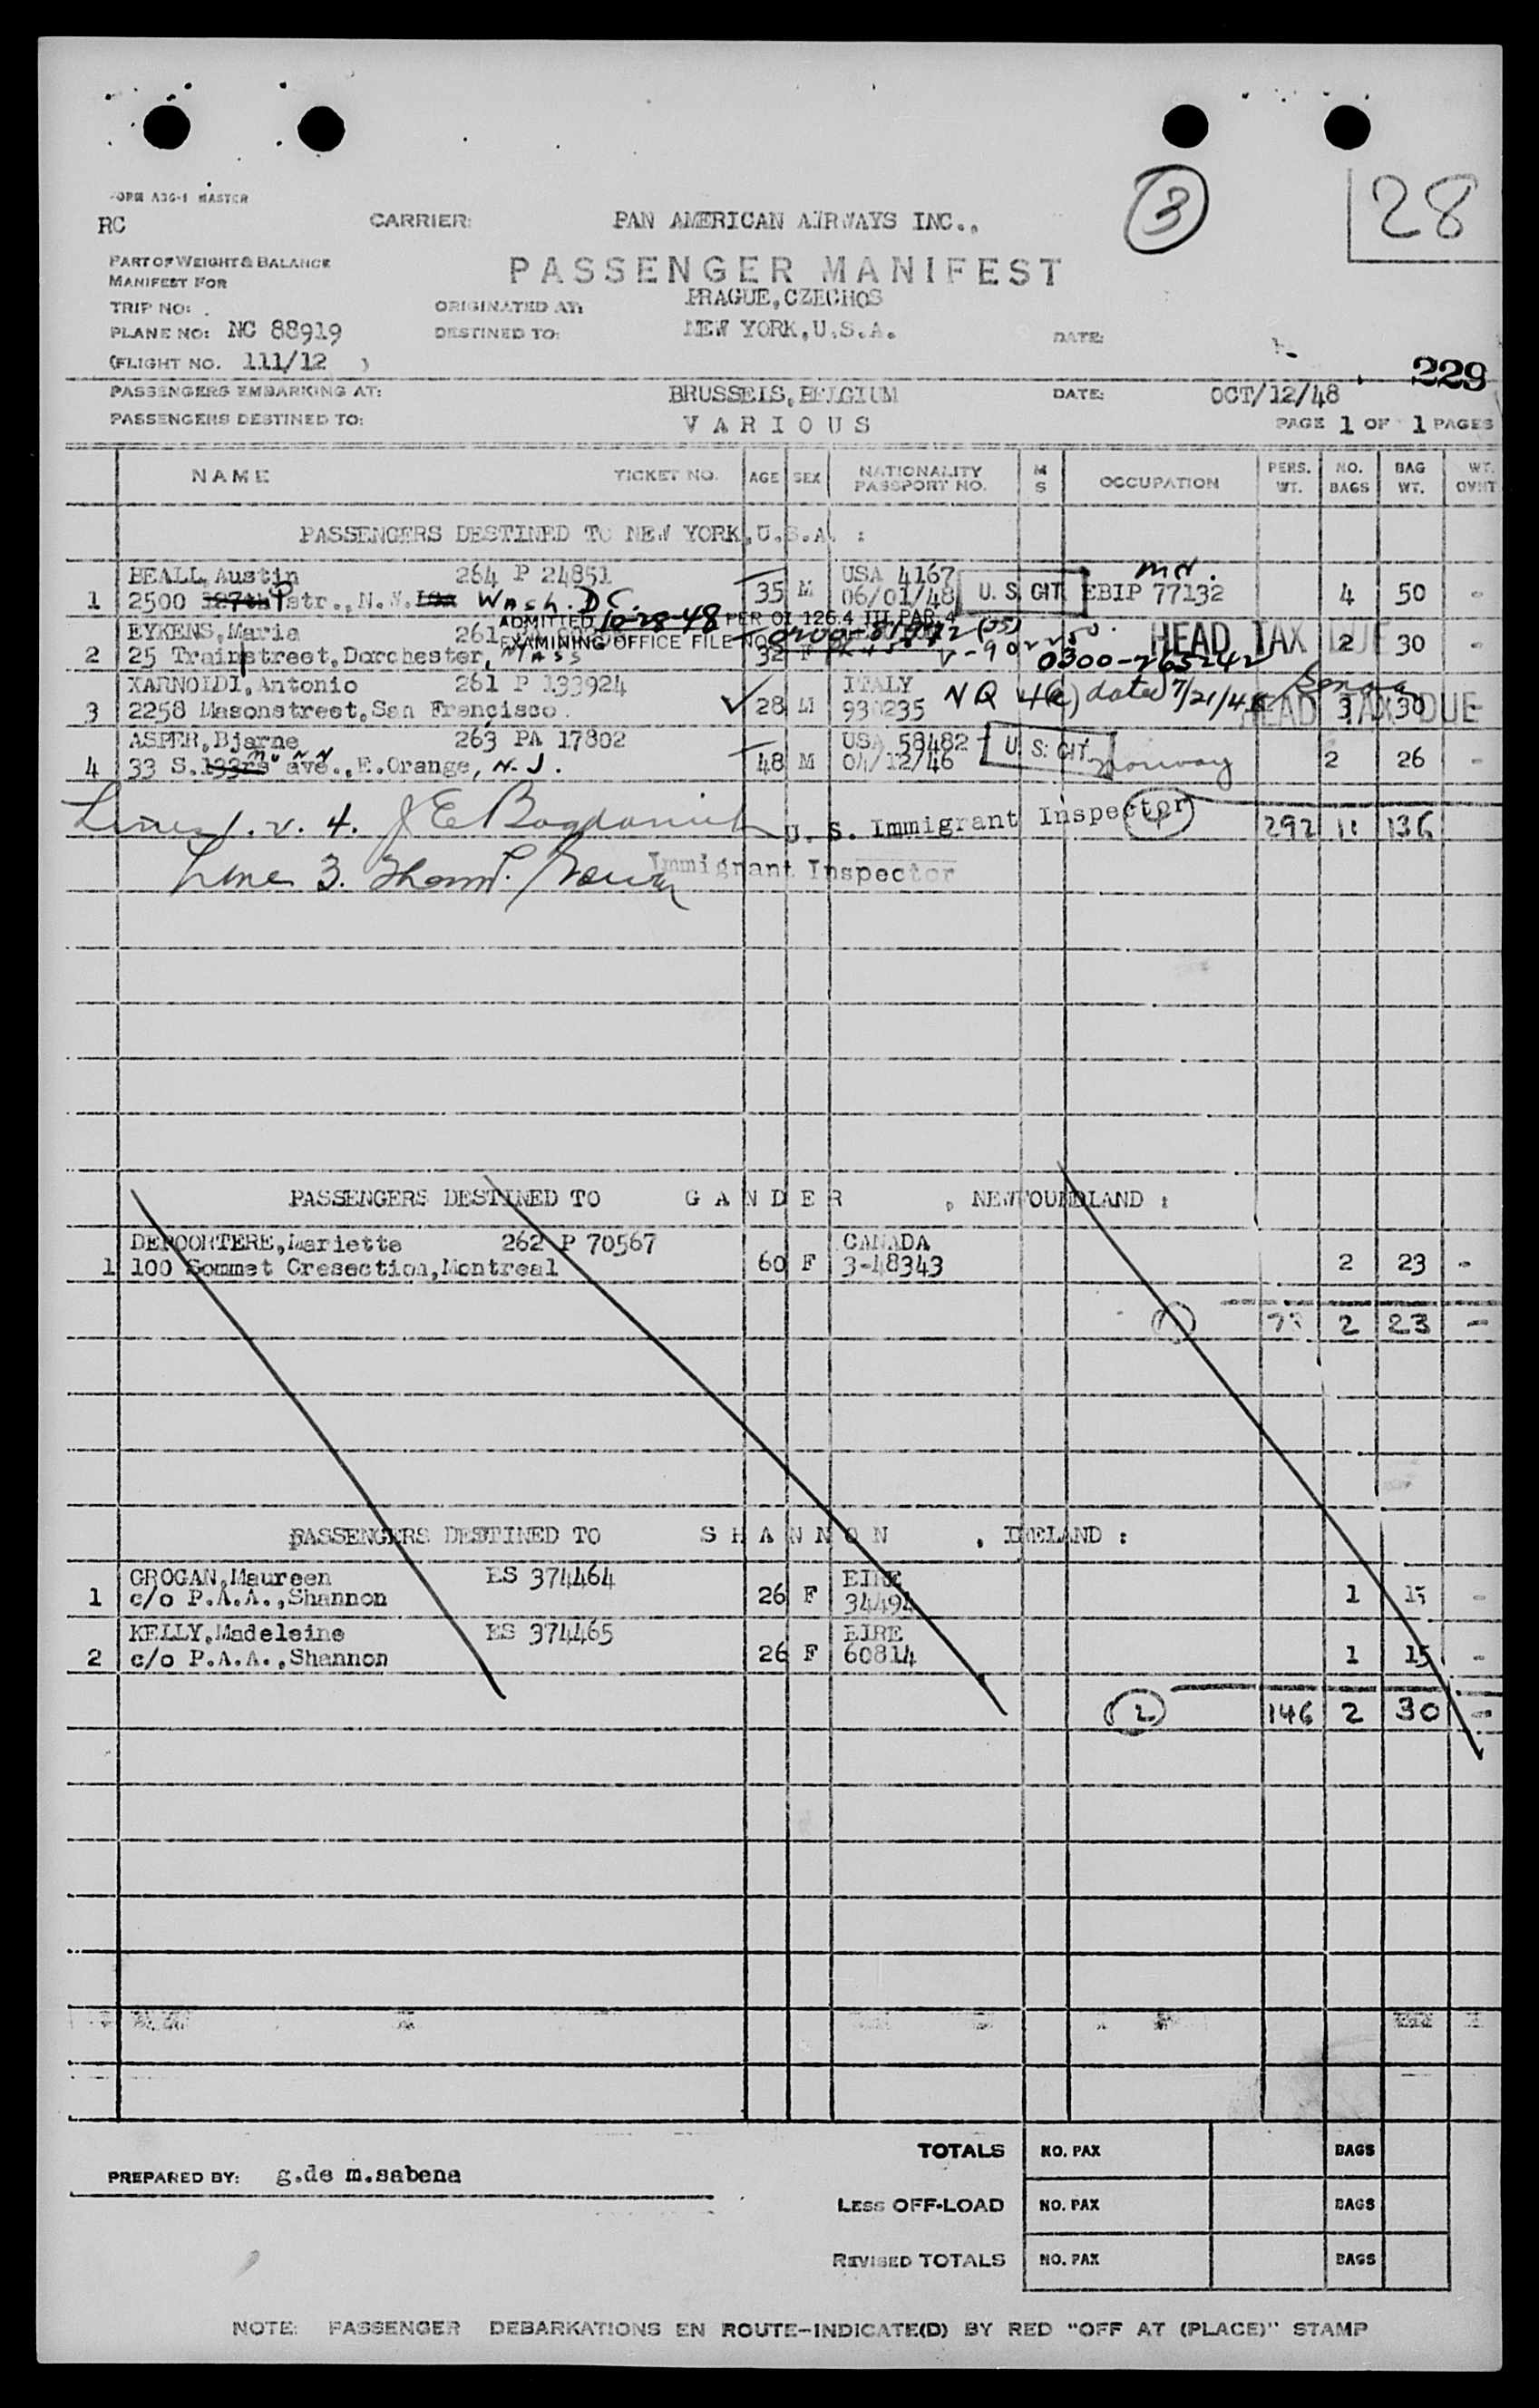 FORM A3G-1 MASTER
RC
CARRIER:
PAN AMERICAN AIRWAYS INC.,
3
28
PART OF WEIGHT & BALANCE
MANIFEST FOR
PASSENGER MANIFEST
TRIP NO:
ORIGINATED AT:
PRAGUE,CZECHOS
PLANE NO: NC 88919
DESTINED TO:
NEW YORK,U.S.A.
DATE:
(FLIGHT NO. 111/12 )
229
PASSENGERS EMBARKING AT:
BRUSSELS,BELGIUM
DATE:
OCT/12/48
PASSENGERS DESTINED TO:
VARIOUS
PAGE 1 OF 1 PAGES
NAME TICKET NO. AGE SEX NATIONALITY PASSPORT NO. M S OCCUPATION PERS. WT. NO. BAGS BAG WT. WT. OVHT
PASSENGERS DESTINED TO NEW YORK,U.S.A. :
BEALL,Austin 264 P 24851 USA 4167
1 2500 str.,N.W. Wash. D.C. 35 M 06/01/48 U.S. CIT. EBIP 77132 4 50 -
ADMITTED 10-28-48 PER OI 126.4 III PAR 4
EYKENS,Maria 261
EXAMINING OFFICE FILE NO.
HEAD TAX DUE
2 25 Trainstreet,Dorchester, Mass 32 F 0300-265242 2 30 -
XARNOIDI,Antonio 261 P 133924 ITALY
3 2258 Masonstreet,San Francisco. 28 M 930235 NQ 4(c) dated 7/21/48 3 30 -
HEAD TAX DUE
ASPER,Bjarne 263 PA 17802 USA 58482 U.S. CIT.
4 33 S. ave.,E.Orange, N.J. 48 M 04/12/46 Norway 2 26 -
Lines 1. v. 4. U. S. Immigrant Inspector 4 292 11 136
Line 3. Immigrant Inspector
PASSENGERS DESTINED TO GANDER , NEWFOUNDLAND :
DEPOORTERE,Mariette 262 P 70567 CANADA
1 100 Sommet Cresection,Montreal 60 F 3-48343 2 23 -
1 73 2 23 -
PASSENGERS DESTINED TO SHANNON , IRELAND :
GROGAN,Maureen ES 374464 EIRE
1 c/o P.A.A.,Shannon 26 F 34494 1 15 -
KELLY,Madeleine ES 374465 EIRE
2 c/o P.A.A.,Shannon 26 F 60814 1 15 -
2 146 2 30 -
TOTALS NO. PAX BAGS
PREPARED BY: g.de m.sabena
LESS OFF-LOAD NO. PAX BAGS
REVISED TOTALS NO. PAX BAGS
NOTE: PASSENGER DEBARKATIONS EN ROUTE-INDICATE(D) BY RED "OFF AT (PLACE)" STAMP